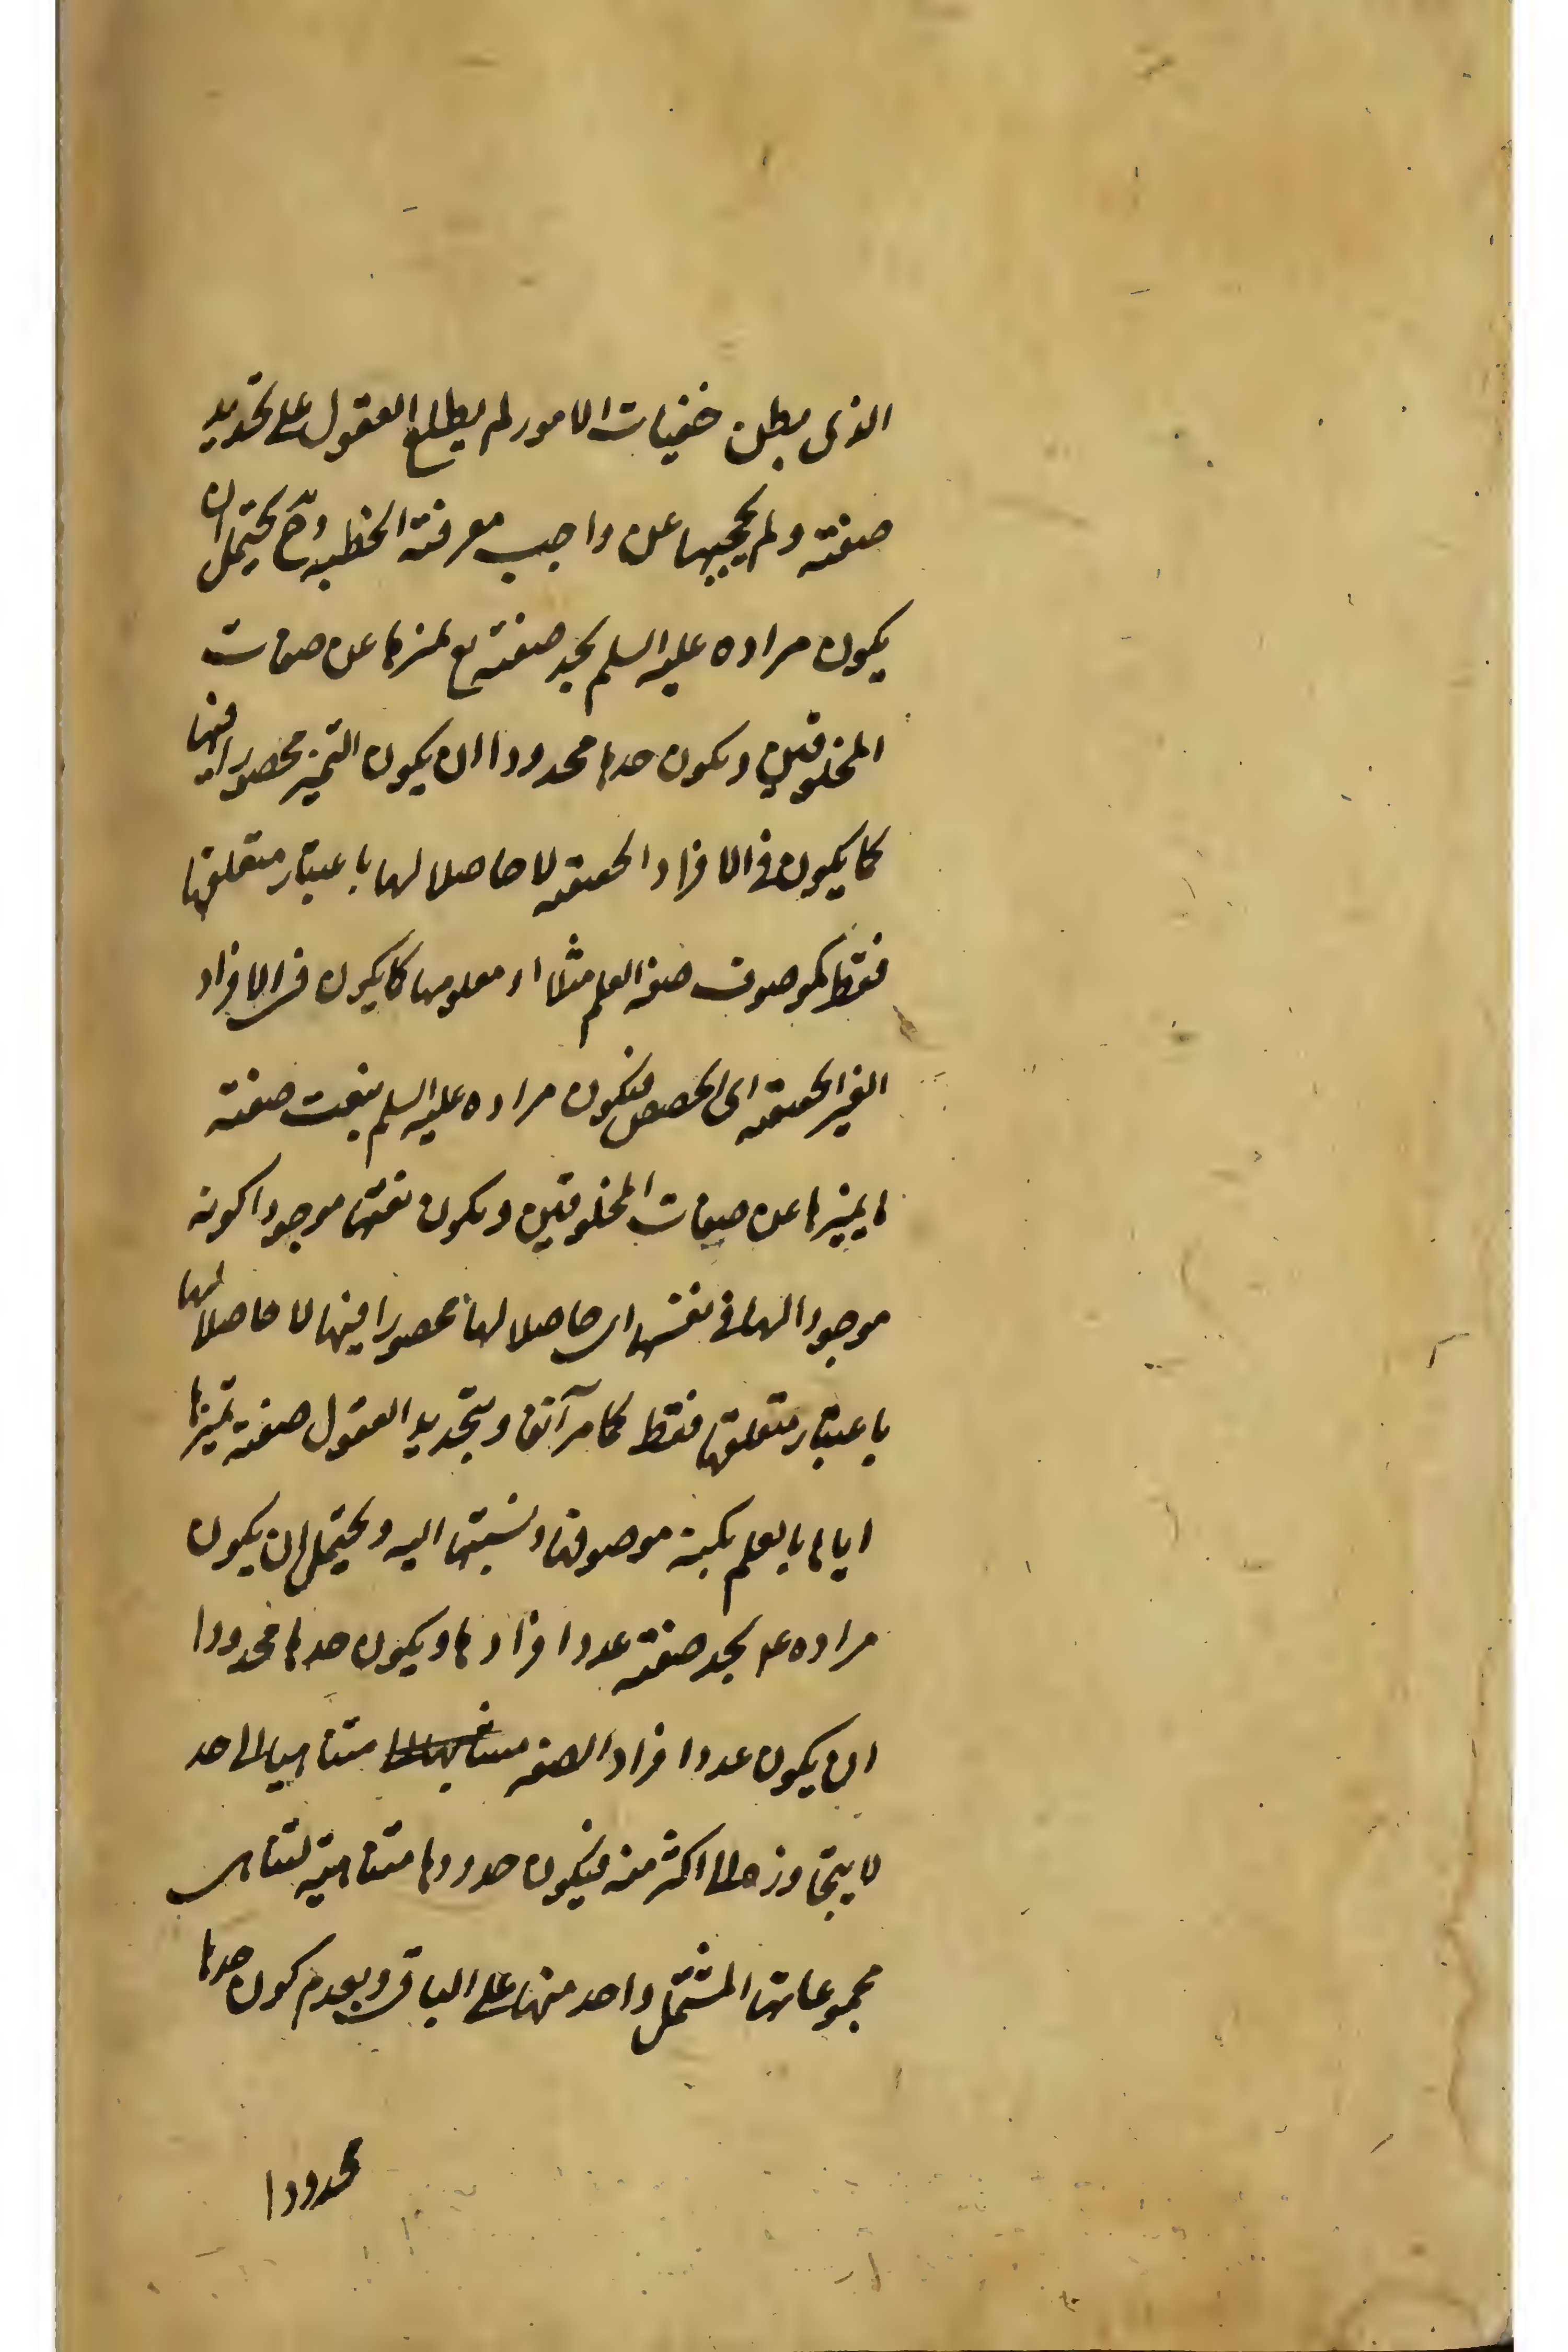 الذى بطن خفيات الامور لم يطلع العقول على تحديد
صفته ولم يحجبها عن واجب معرفته الخطبه وح يحتمل ان
يكون مراده عليه السلم بحد صفته تع تميزها عن صفات
المخلوقين وبكون حدها محدودا ان يكون التميز محصورا فيها
كما يكون فى الافراد الحقيقه لا حاصلا لها باعتبار متعلقها
فقط كموصوف صفه العلم مثلا او معلومها كما يكون فى الافراد
الغير الحقيقه اى الحصص فيكون مراده عليه السلم بنعت صفته
ما يميزها عن صفات المخلوقين وبكون نعتها موجودا كونه
موجودا لها فى نفسها اى حاصلا لها محصورا فيها لا حاصلا لها
باعتبار متعلقها فقط كما مر آنفا وبتحديد العقول صفته تميزها
اياها بالعلم بكنه موصوفها ونسبتها اليه ويحتمل ان يكون
مراده ع بحد صفته عدد افرادها وبكون حدها محدودا
ان يكون عدد افراد الصفه متناهيا الى حد
لا يتجاوز الى اكثر منه فيكون حدودها متناهيه لتناهى
مجموعاتها المشتمل واحد منها على الباقى وبعدم كون حدها
محدودا